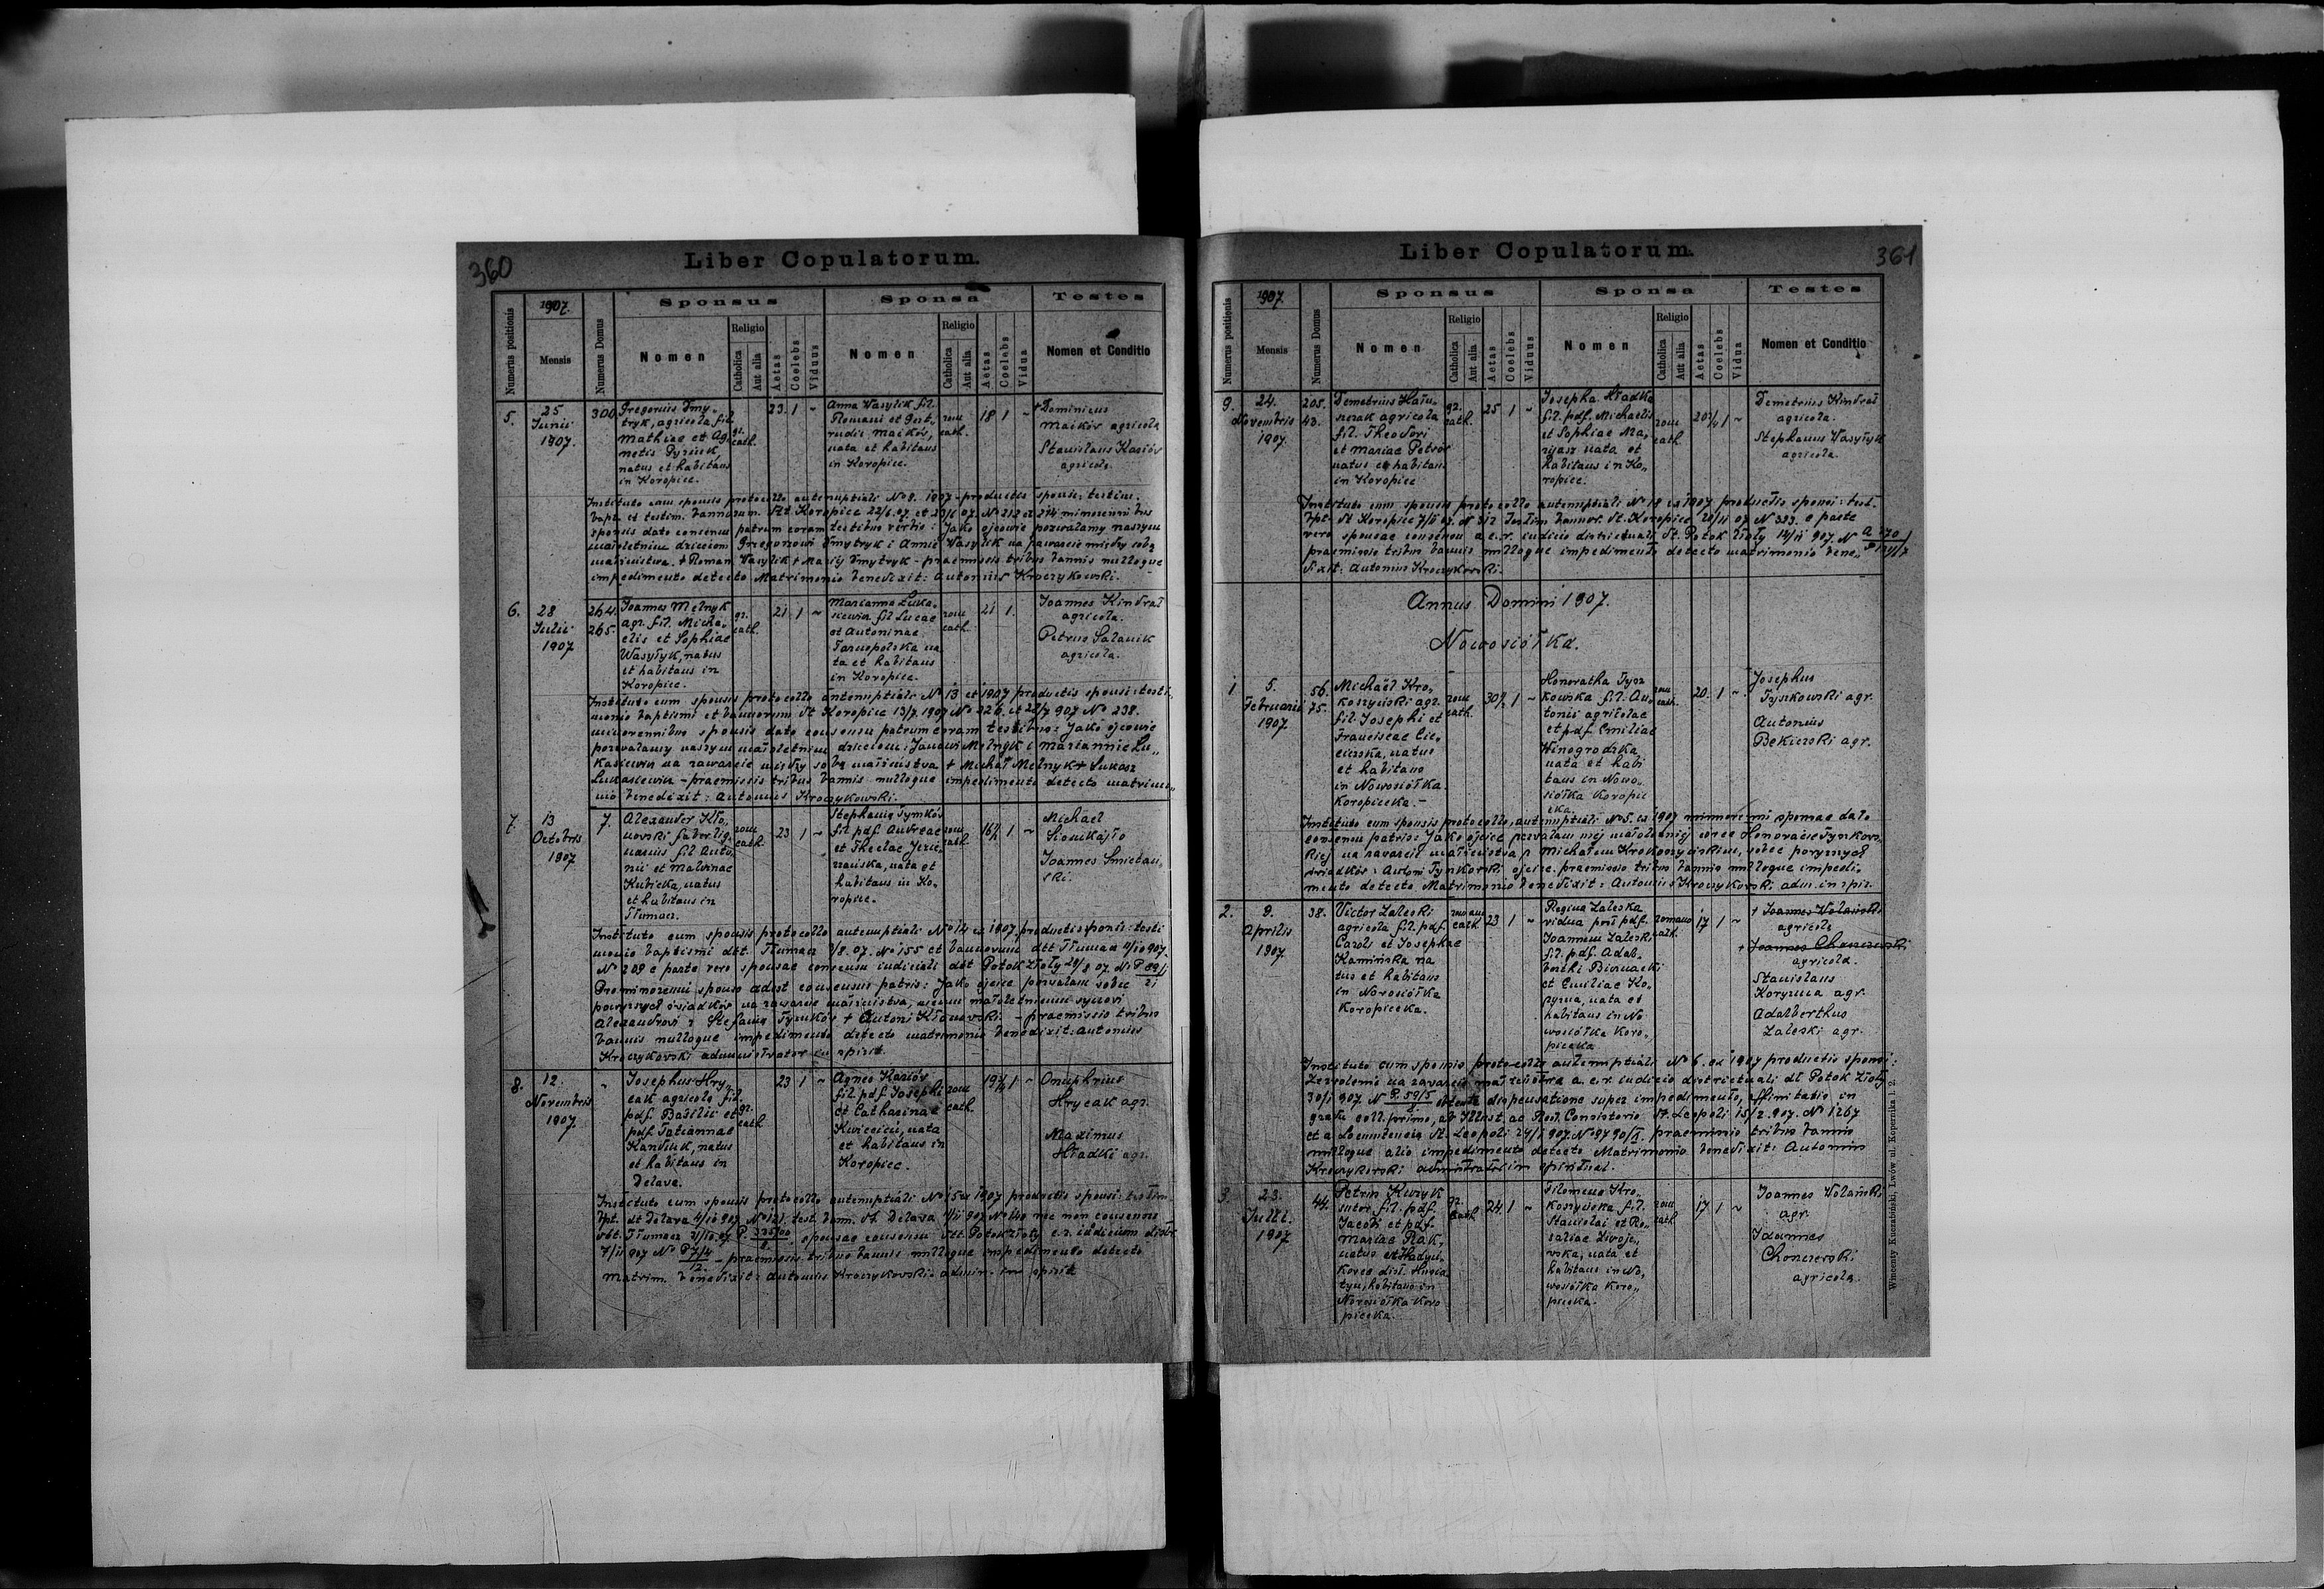 360
Liber Copulatorum.
Numerus positionis
1907.
Mensis
Numerus Domus
Sponsus
Nomen
Religio
Catholica
Aut alia
Aetas
Coelebs
Viduus
Sponsa
Nomen
Religio
Catholica
Aut alia
Aetas
Coelebs
Vidua
Testes
Nomen et Conditio
5.
25
Junii
1907.
300
Gregorius Dmy„
tryk, agricola, fil.
Mathiae et Ag„
netis
natus et habitans
in Koropiec.
gr.
cath.
23. 1 ~
Anna Wasylik fil.
Romani et Gert„
rudis Maików,
nata et habitans
in Koropiec.
rom
cath.
18 1 ~
+ Dominicus
Maików agricola
Stanislaus Kaziów
agricola.
Instituto cum sponsis protocollo antenuptiali No 8. 1907 - productis sponsi: testim.
bapt. et testim. bannorum. dtt Koropiec 22/6.07 et 23/6 07. No 212 et 214 minorennibus
sponsis dato consensu patrum coram testibus verbis: Jako ojcowie pozwalamy naszym
małoletnim dzieciom Grzegorzowi Dmytryk i Annie Wasylik na zawarcie między sobą
małżeństwa. + Roman Wasylik + Maciej Dmytryk - praemissis tribus bannis nulloque
impedimento detecto Matrimonio benedixit: Antonius Kroczykowski.
6.
28
Julii
1907
264.
265.
Joannes Melnyk
agr. fil. Micha„
elis et Sophiae
Wasyłyk, natus
et habitans in
Koropiec.
gr.
cath.
21 1 ~
Marianna Luka„
siewicz fil Lucae
et Antoninae
Tarnopolska na
ta et habitans
in Koropiec.
rom
cath.
21 1.
Joannes Kindrat
agricola.
Petrus Salanik
agricola.
Instituto cum sponsis protocollo antenuptiali No 13 et 1907 productis sponsi: testi„
monio baptismi et bannorum dt Koropiec 13/7. 1907 No 226. et 28/7 907 No 238.
minorennibus sponsis dato consensu patrum coram testibus: Jako ojcowie
pozwalamy naszym małoletnim dzieciom: Janowi Melnyk i Mariannie Lu„
kasiewicz na zawarcie między sobą małżeństwa + Michał Melnyk + Łukasz
Lukasiewicz - praemissis tribus bannis nulloque impedimento detecto matrimo„
nio benedixit: Antonius Kroczykowski.
7.
13
Octobris
1907
7.
Alexander Kło„
nowski faber lig„
narius fil Anto„
nii et Malvinae
Kubicka, natus
et habitans in
Tłumacz.
rom
cath
23 1 ~
Stephania Tymków
fil pdf. Andreae
et Theclae Jerze„
nata et
habitans in Ko„
ropiec.
rom
cath.
16½ 1 ~
Michael
Joannes Śmietań„
ski.
Instituto cum sponsis protocollo antenuptiali No 14 ex 1907, productis sponsi: testi
monio baptismi dtt. Tłumacz 1/8. 07. No 155 et bannorum dtt Tłumacz 11/10 907.
No 209 e parte vero sponsae consensu iudiciali dtt Potok Złoty 28/8 07 No P 89/1
21
Pro minorenni sponso adest consensus patris: Jako ojciec pozwalam wobec
powyższych świadków na zawarcie małżeństwa, memu małoletniemu synowi
Alexandrowi z Stefanią Tymków + Antoni Kłonowski. - praemissis tribus
bannis nulloque impedimento detecto matrimonio benedixit: Antonius
Kroczykowski administrator in spirit.
8.
12.
Novembris
1907.
„
Josephus Hry„
cak agricola fil.
pdf. Basilii et
pdf. Tatiannae
Kandiuk, natus
et habitans in
Delawa.
gr.
cath
23 1 ~
Agnes Kaziów
fil. pdf Josephi
et Catharinae
Kwiecień, nata
et habitans in
Koropiec.
rom
cath.
19¾ 1 ~
Onuphrius
Hrycak agr.
Maximus
Hładki agr.
Instituto cum sponsis protocollo antenuptiali No 15 ex 1907 productis sponsi: testim.
bpt. dt Delawa 11/10 907 No 121. test. bann. dt. Delawa 1/11 907 No 140 nec non consensus
dtt. Tłumacz 2/10.07 P. sponsae consensu dtt. Potok Złoty c. r. iudicium distr.
7/11 907 No P 7/4
12. - praemissis tribus bannis nulloque impedimento detecto
matrim. benedixit: Antonius Kroczykowski admin. in spirit
361
Liber Copulatorum.
Numerus positionis
1907.
Mensis
Numerus Domus
Sponsus
Nomen
Religio
Catholica
Aut alia
Aetas
Coelebs
Viduus
Sponsa
Nomen
Religio
Catholica
Aut alia
Aetas
Coelebs
Vidua
Testes
Nomen et Conditio
9.
24.
Novembris
1907.
205.
43.
Demetrius
agricola
fil. Theodori
et Mariae Petrów
natus et habitans
in Koropiec
gr.
cath.
25 1 ~
Josepha Hładka
fil. pdf. Michaelis
et Sophiae Ma„
nata et
habitans in Ko„
ropiec.
rom
cath
20¼ 1 ~
Demetrius Kindrat
agricola.
Stephanus Wasyłyk
agricola.
Instituto cum sponsis protocollo antenuptiali No 18 ex 1907 productis sponsi: test.
bpt. dt Koropiec 7/11 07. No 312 testim bannor. dt. Koropiec 20/11 07 No 323. e parte
vero sponsae consensu a c. r. iudicio districtuali dt. Potok Złoty 14/11 907. No A 170/
P 124/7
praemissis tribus bannis nulloque impedimento detecto matrimonio bene„
dixit: Antonius Kroczykowski.
Annus Domini 1907.
Nowosiółka.
1
5.
Februarii
1907.
56.
75.
Michaël Kro„
koszyński agr.
fil. Josephi et
Franciscae Cie„
natus
et habitans
in Nowosiółka
Koropiecka.-
rom
cath.
30½ 1 ~
Honoratha Tysz
kowska fil. An„
tonii agricolae
et pdf Emiliae
Winogrodzka,
nata et habi
tans in Nowo„
siółka Koropie
cka.
rom
cath.
20. 1 ~
Josephus
Tyszkowski agr.
Antonius
Bekierski agr.
Instituto cum sponsis protocollo, antenuptiali No 5. ex 1907 minorenni sponsae dato
consensu patris: Jako ojciec pozwalam mej małoletniej córce Honoracie Tyszkows„
kiej na zawarcie małżeństwa z Michałem Krokoszyńskim, wobec powyższych
świadków: Antoni Tyszkowski ojciec. praemissis tribus bannis nulloque impedi„
mento detecto Matrimonio benedixit: Antonius Kroczykowski adm. in spir.
2.
9.
Aprilis
1907
38.
Victor Zaleski
agricola fil. pdf.
Caroli et Josephae
Kamińska na
tus et habitans
in Nowosiółka
Koropiecka.
romano
cath
23 1 ~
Regina Zaleska
vidua post pdf.
Joannem Zaleski
fil. pdf. Adal„
berthi Biernacki
et Emiliae Ko„
ryzma, nata et
habitans in No
wosiółka Koro„
piecka.
romano
cath.
17 1 ~
+ Joannes Wolański
agricola
+ Joannes Chonczewski
agricola.
Stanislaus
Koryzma agr.
Adalberthus
Zaleski agr.
Instituto cum sponsis protocollo antenuptiali No 6. ex 1907 productis sponsi:
zezwolenie na zawarcie małżeństwa a. c. r. iudicio districtuali dt Potok Złoty
30/1 907 No P. 59/5
8 obtenta dispensatione super impedimento affinitatis in
gradu coll. primo, ab Illust. ac Rssd. Consistorio dt. Leopoli 15/2. 907. No 1267
et a Locumtenentia dt. Leopoli 24/1 907. No praemissis tribus bannis
nulloque alio impedimento detecto Matrimonio benedixit: Antonius
Kroczykowski administrator in spiritual.
3.
23.
Julii.
1907
44.
Petrus Kuzyk
sutor fil. pdf.
Jacobi et pdf.
Mariae Rak,
natus et
kowce dist. Husia
tyn, habitans in
Nowosiółka Koro
piecka.
gr.
cath
24. 1 ~
Filomena Kro„
koszyńska fil.
Stanislai et Ro„
saliae
wska, nata et
habitans in No„
wosiółka Koro„
piecka.
rom
cath
17 1 ~
Joannes Wolański
agr.
Joannes
Chonczewski
agricola.
Wincenty Kuczabiński, Lwów, ul. Kopernika l. 2.